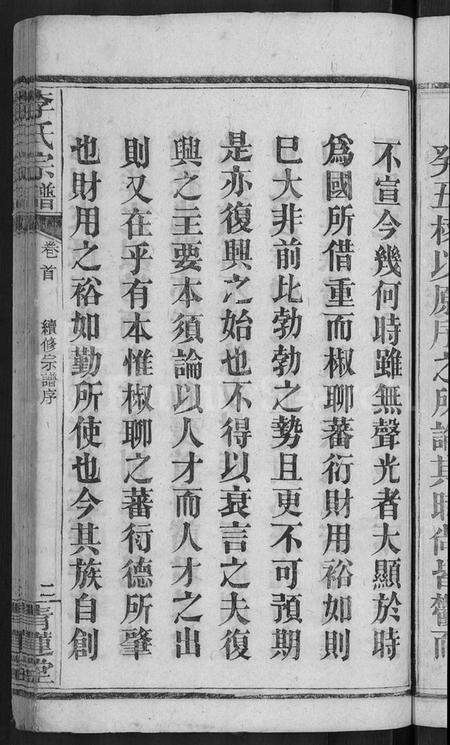 癸丑校以原序之所論其時尚皆譽而
不宣今幾何時雖無聲光者大顯於時
爲國所借重而椒聊蕃衍財用裕如則
巳大非前比勃勃之勢且更不可預期
是亦復興之始也不得以衰言之夫復
興之主要本須論以人才而人才之出
則又在乎有本惟椒聊之蕃衍德所肇
也財用之裕如勤所使也今其族自創
李氏宗譜
卷首
續修宗譜序
二
青蓮堂